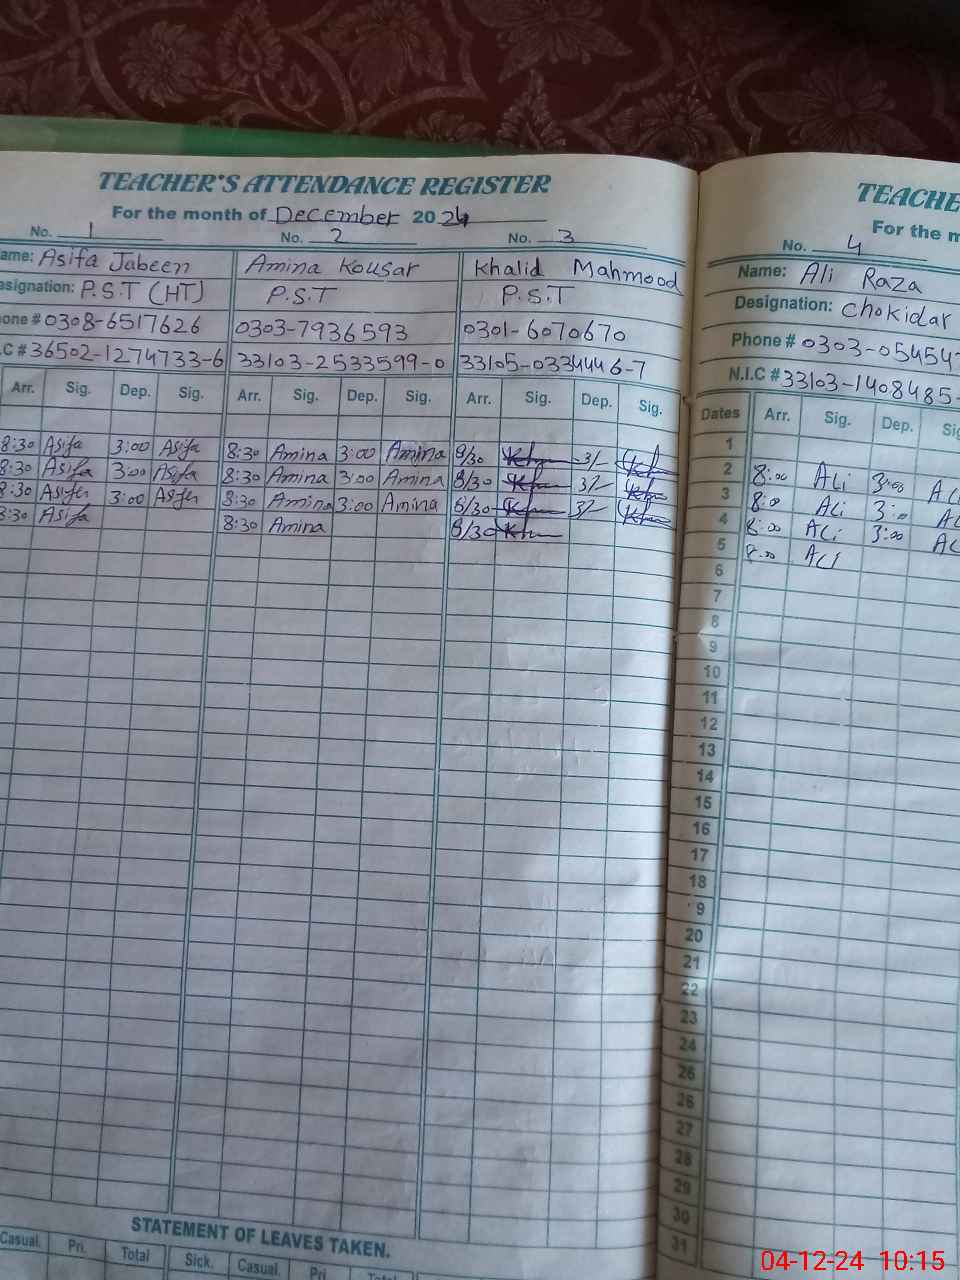 TEACHER'S ATTENDANCE REGISTER
For the month of December 2024
No. 1 No. 2 No. 3
ame: Asifa Jabeen Amina Kousar Khalid Mahmood
esignation: P.S.T (HT) P.S.T P.S.T
one # 0308-6517626 0303-7936593 0301-6070670
.C # 36502-1274733-6 33103-2533599-0 33105-0334446-7
Arr. Sig. Dep. Sig. Arr. Sig. Dep. Sig. Arr. Sig. Dep. Sig.
8:30 Asifa 3:00 Asifa 8:30 Amina 3:00 Amina 8/30 3/-
8:30 Asifa 3:00 Asifa 8:30 Amina 3:00 Amina 8/30 3/-
8:30 Asifa 3:00 Asifa 8:30 Amina 3:00 Amina 8/30 3/-
8:30 Asifa 8:30 Amina 8/30
STATEMENT OF LEAVES TAKEN.
Casual. Pri. Total Sick. Casual. Pri Total
TEACHE
For the m
No. 4
Name: Ali Raza
Designation: Chokidar
Phone # 0303-05454
N.I.C # 33103-1408485-
Dates Arr. Sig. Dep. Sig
1
2 8:00 ALi 3:00 AL
3 8:00 ALi 3:00 AL
4 8:00 ALi 3:00 AL
5 8:00 ALI
6
7
8
9
10
11
12
13
14
15
16
17
18
9
20
21
22
23
24
26
26
27
28
29
30
31
04-12-24 10:15